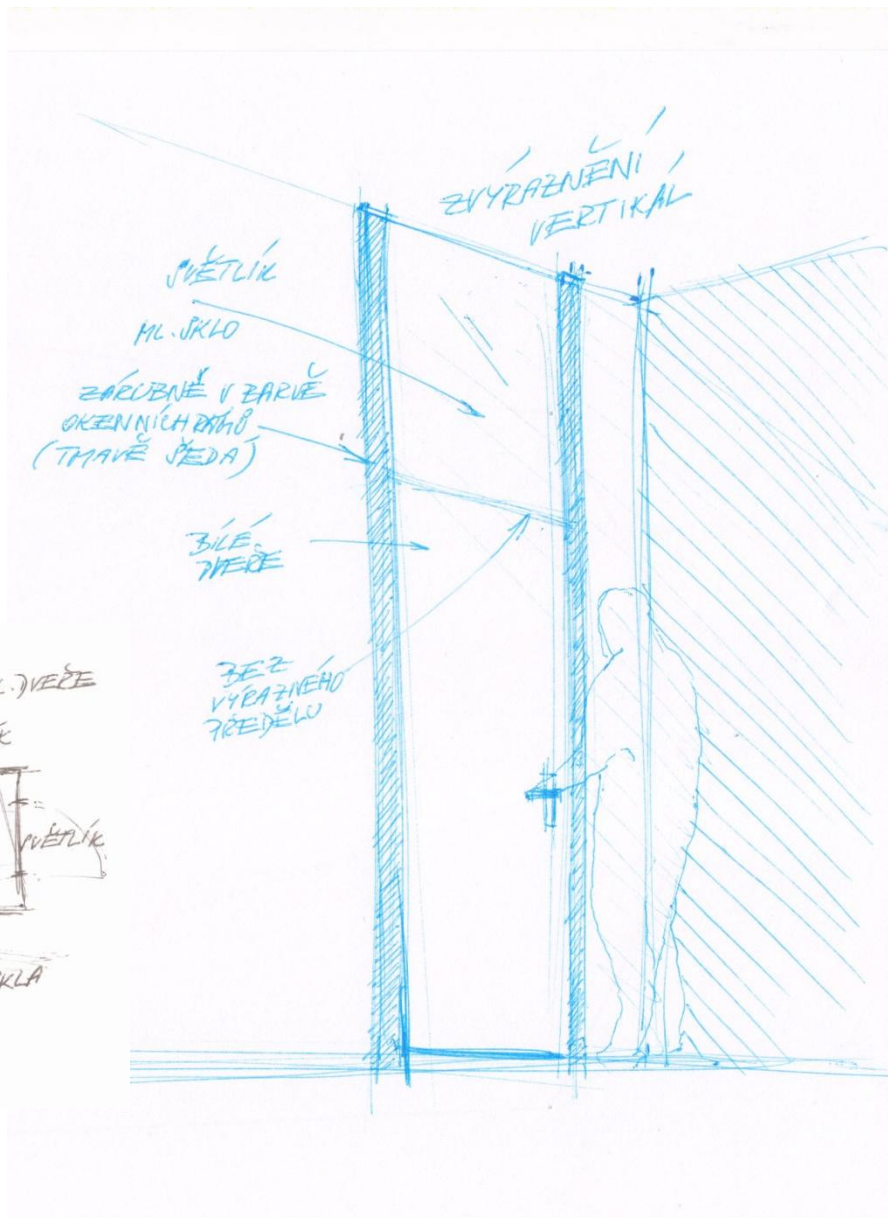 ZVÝRAZNĚNÍ
VERTIKÁL
SVĚTLÍK
ML. SKLO
ZÁRUBNĚ V BARVĚ
OKENNÍCH RÁMŮ
(TMAVĚ ŠEDÁ)
BÍLÉ
DVEŘE
BEZ
VÝRAZNÉHO
PŘEDĚLU
DVEŘE
SVĚTLÍK